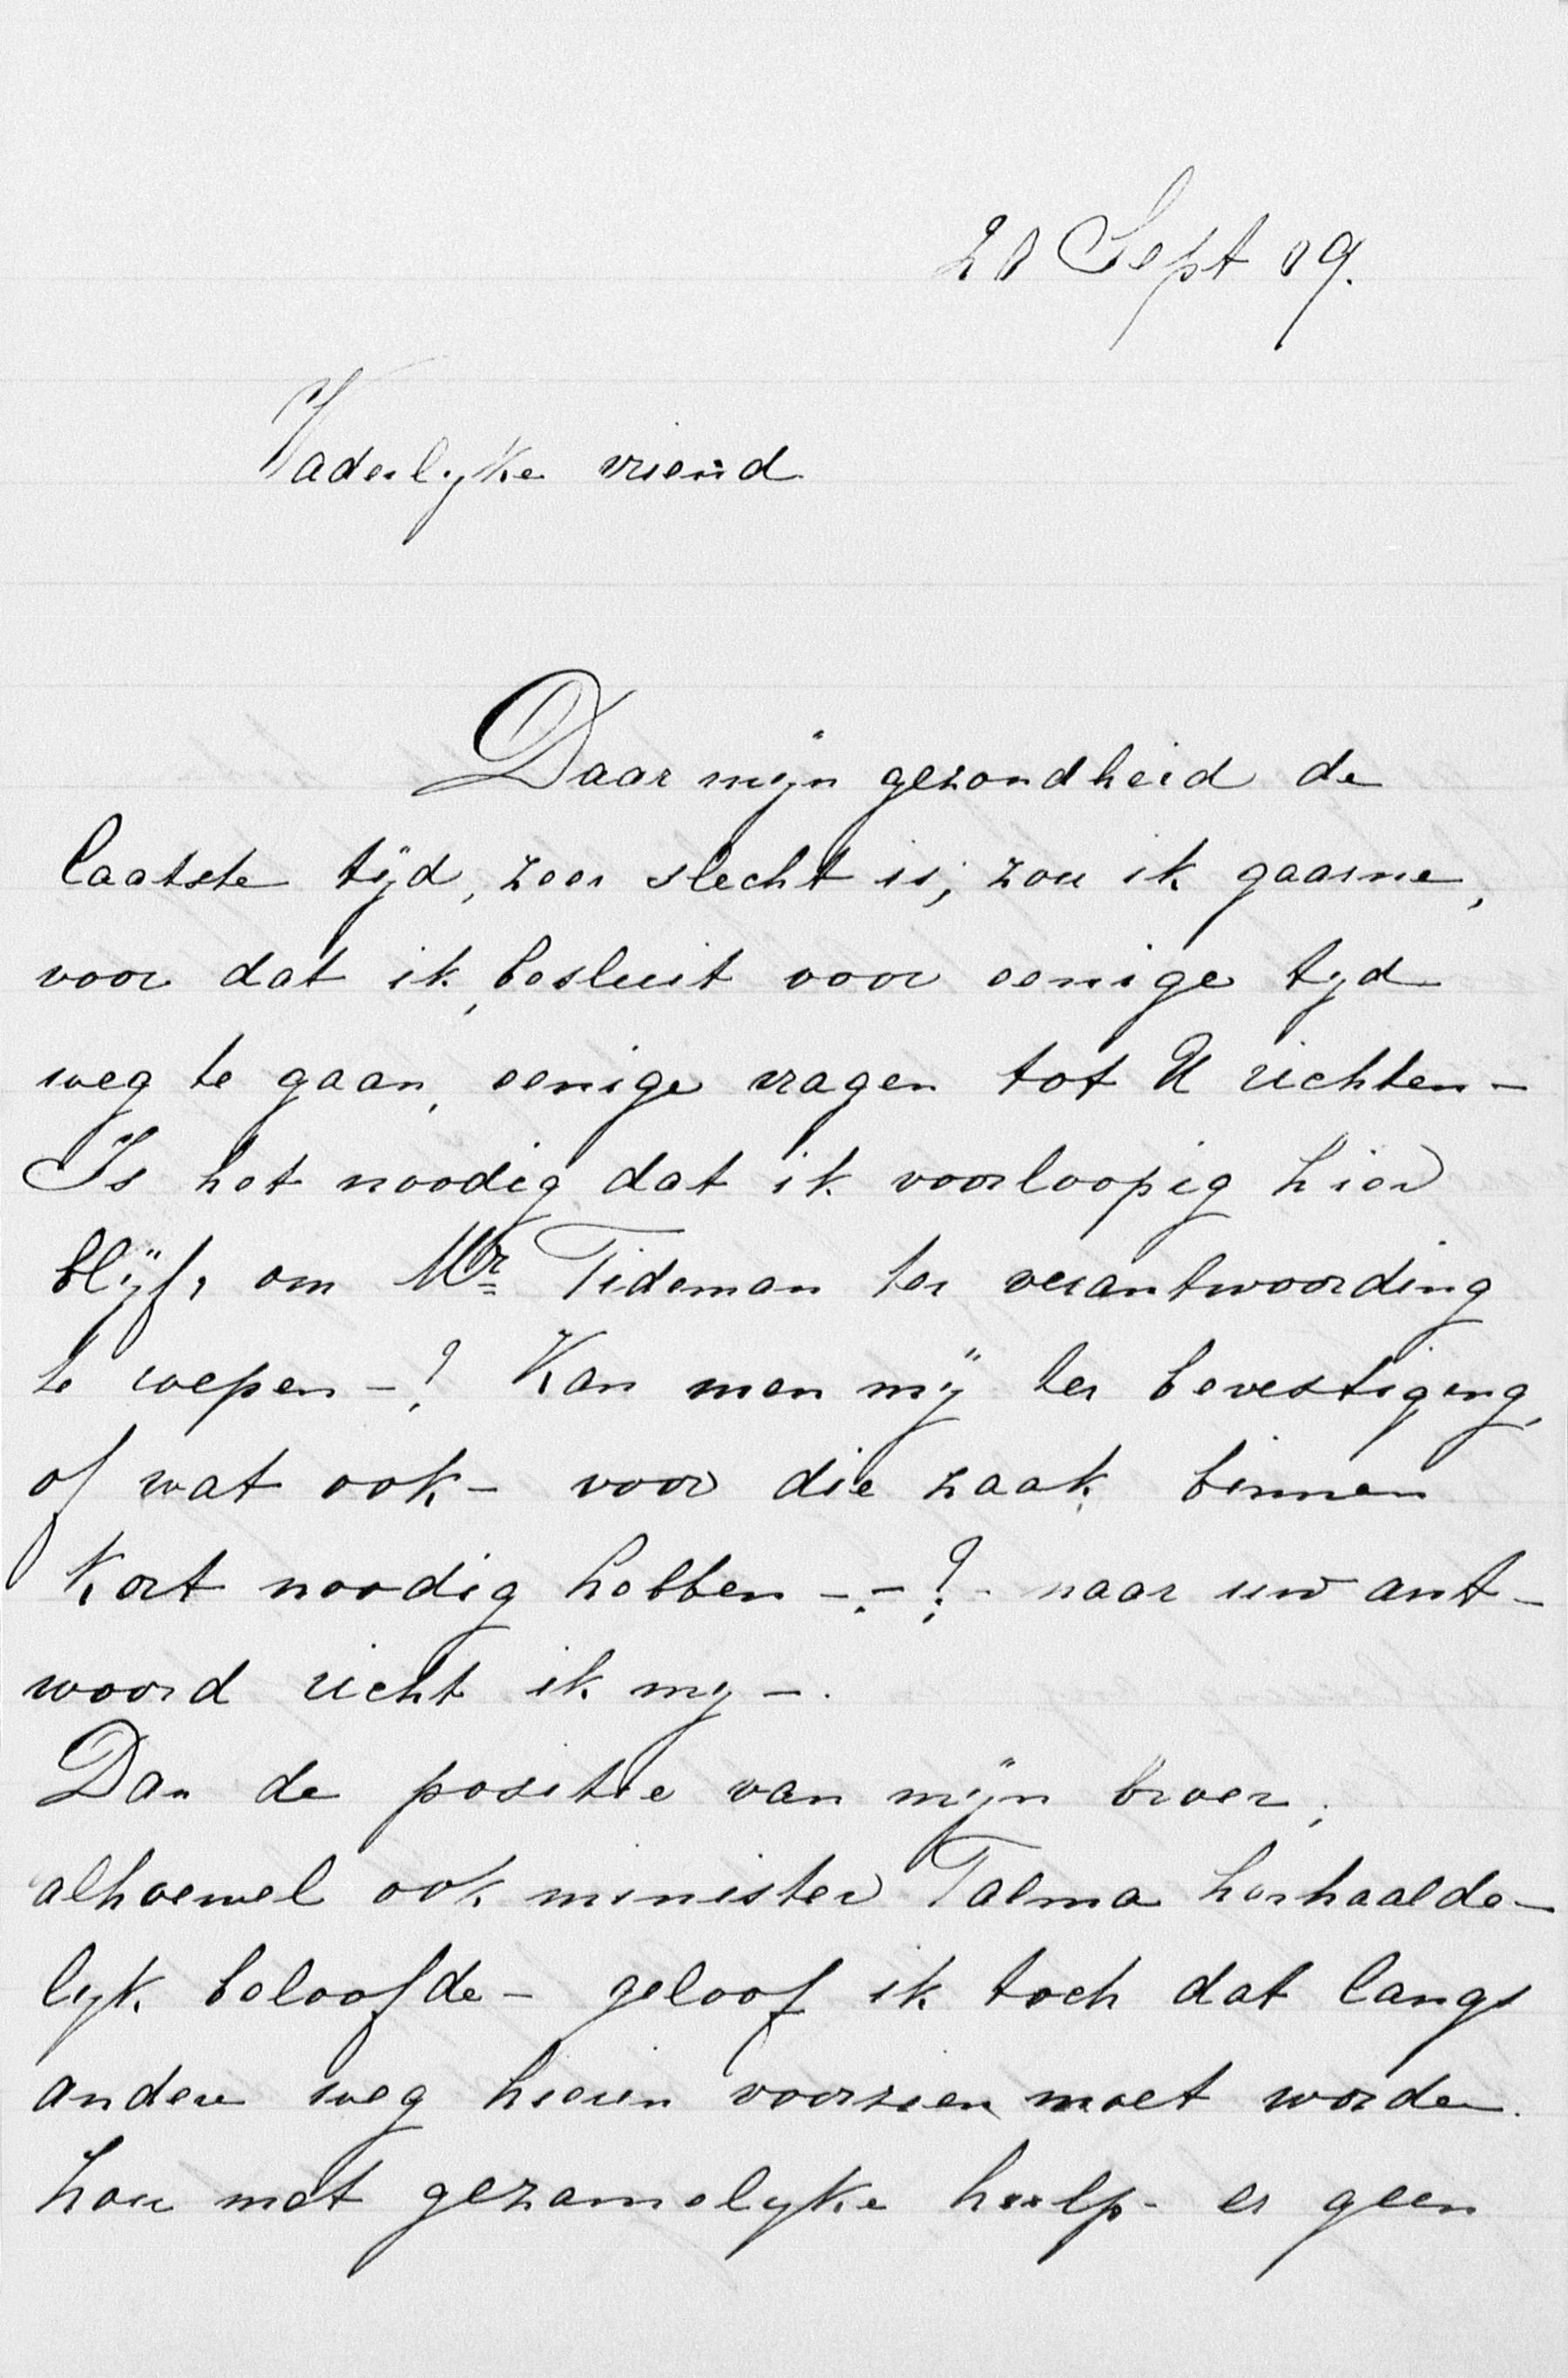 20 Sept 09.
Vaderlyke vriend
Daar mijn gezondheid de
laatste tijd, zeer slecht is, zou ik gaarne,
voor dat ik, besluit voor eenige tyd
weg te gaan, eenige vragen tot U richten –
Is het noodig dat ik voorloopig hier
blijf, om Mr Tideman ter verantwoording
te roepen –? Kan men mij ter bevestiging,
of wat ook – voor die zaak binnen
kort noodig hebben –.–? naar uw ant–
woord richt ik my –.
Dan de positie van mijn broer,
alhoewel ook minister Talma herhaalde–
lyk beloofde – geloof ik toch dat langs
andere weg hierin voorzien moet worden.
Zou met gezamelyke hulp – er geen